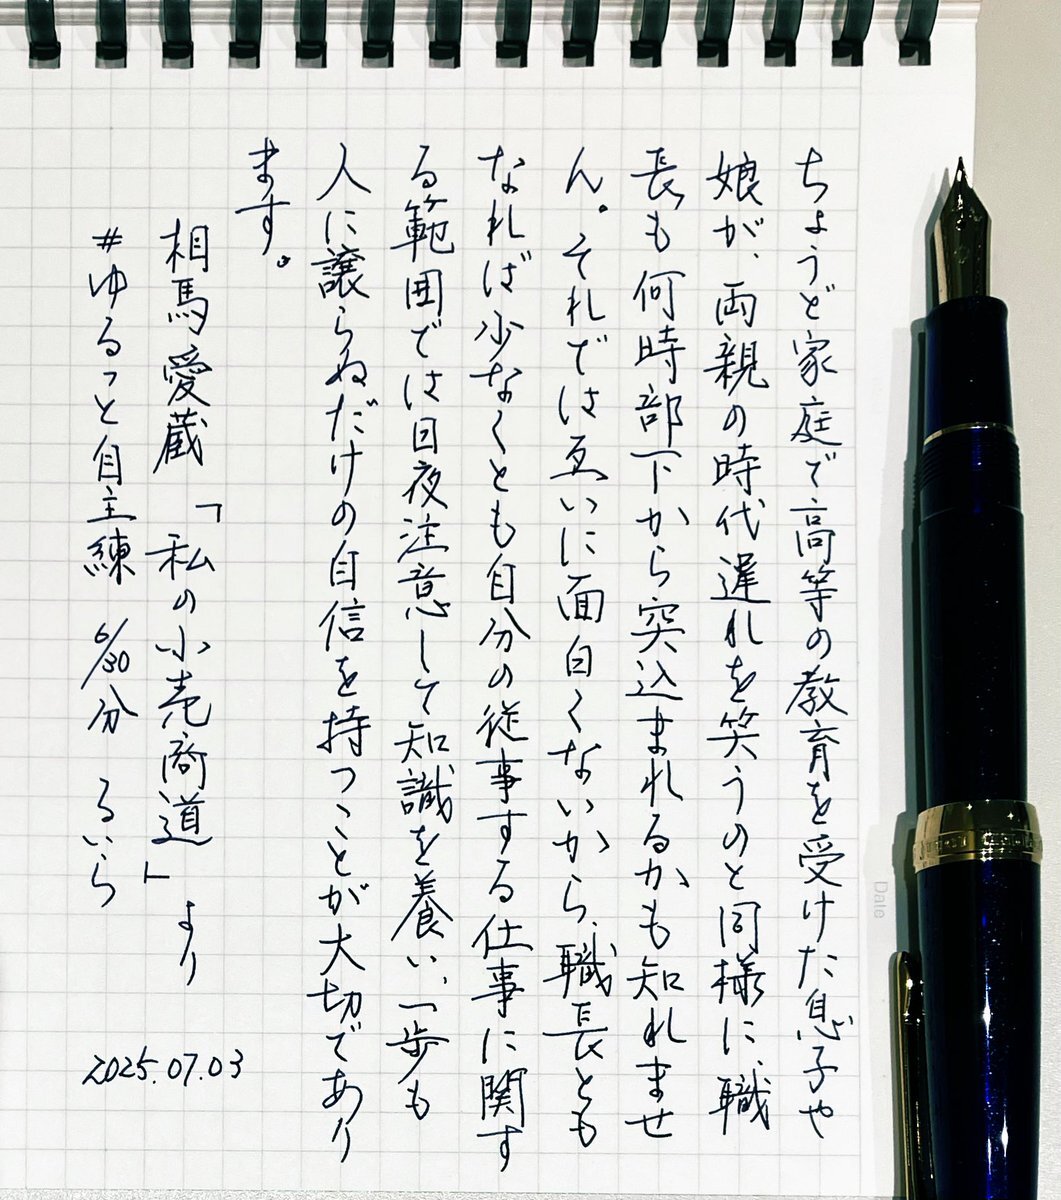 ちょうど家庭で高等の教育を受けた息子や
娘が、両親の時代遅れを笑うのと同様に、職
長も何時部下から突込まれるかも知れませ
ん。それでは互いに面白くないから、職長とも
なれば少なくとも自分の従事する仕事に関す
る範囲では日夜注意して知識を養い、一歩も
人に譲らぬだけの自信を持つことが大切であり
ます。
相馬愛蔵「私の小売商道」より
#ゆるっと自主練 6/30分 るいら
2025.07.03
Date